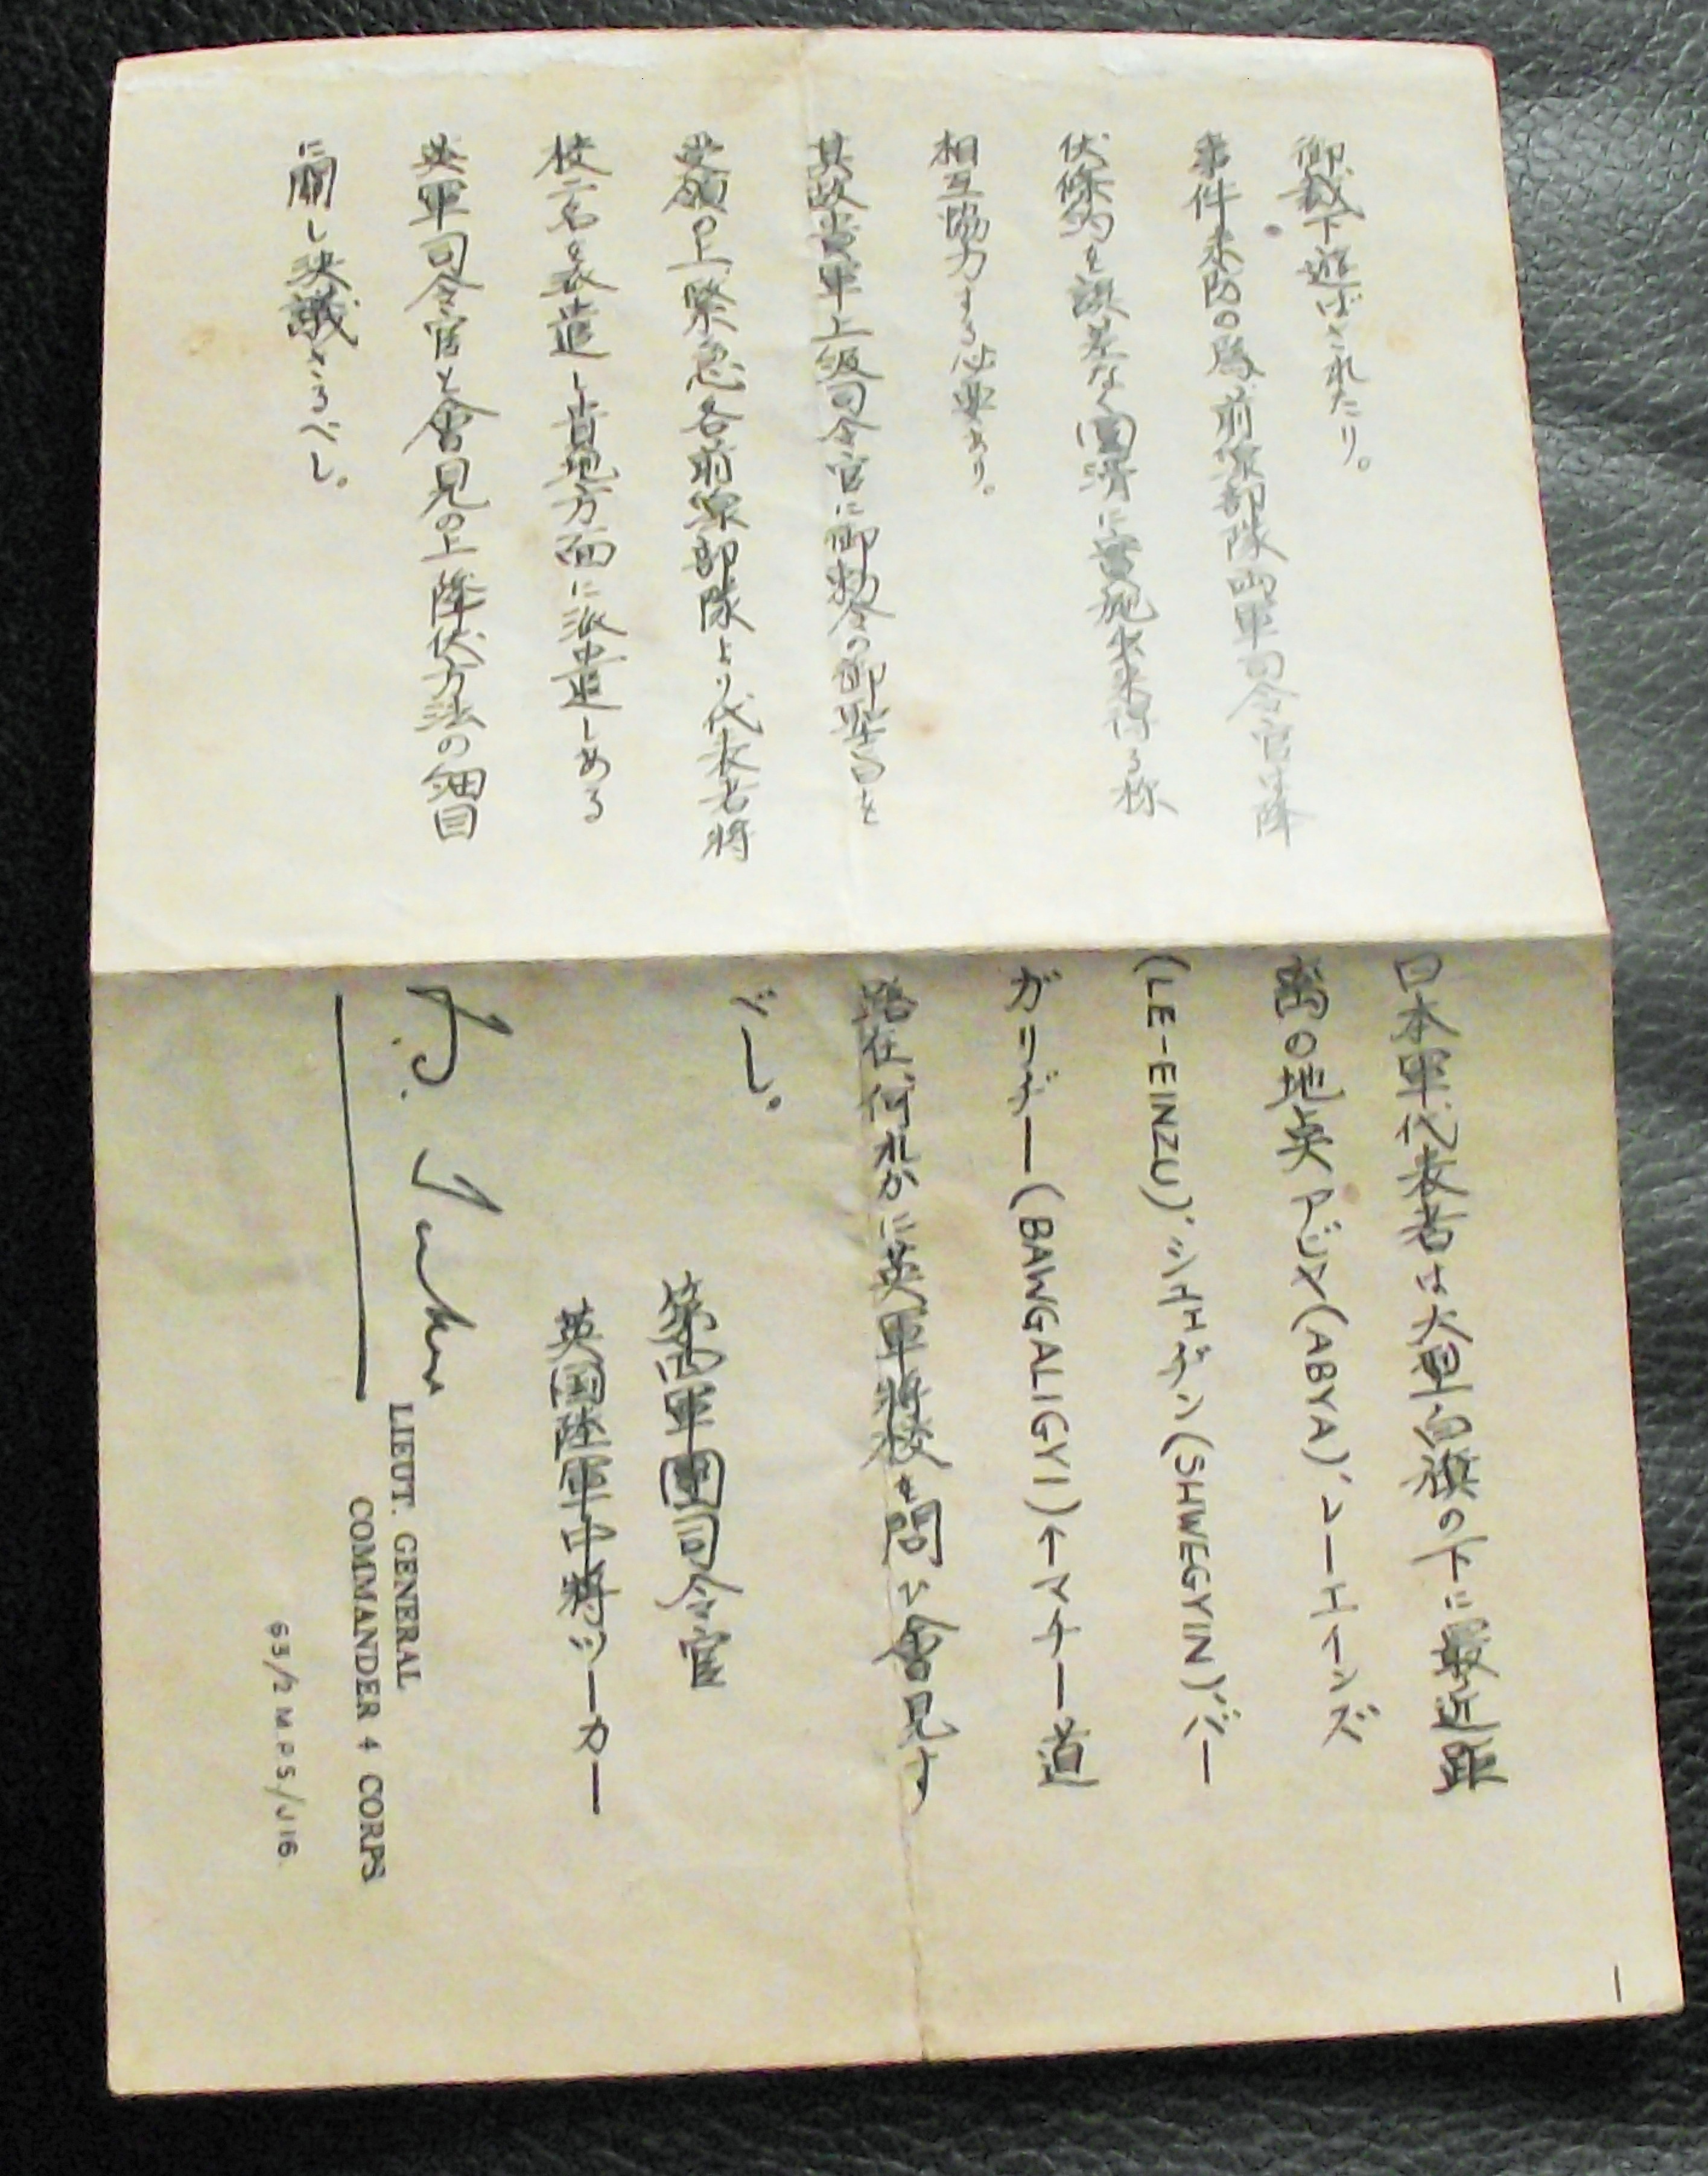 御裁下遊ばされたり。
事件未防の爲、前線部隊両軍司令官は降
伏條約を誤差なく圓滑に實施出來得る称
相互協力する必要あり。
其故貴軍上級司令官に御勅令の御聖旨を
受領の上緊急各前線部隊より代表者将
校二名を表遣し肯地方面に派遣しめる
英軍司令官と會見の上降伏方法の細目
に関し決議するべし。
日本軍代表者は大型白旗の下に最近距
離の地点アビヤ(ABYA)、レーエインズ
(LE-EINZU)、シュエギン(SHWEGYIN)、バー
ガリギー(BAWGALIGYI)↑マチー道
路在何れかに英軍将校を問ひ會見す
べし。
第四軍團司令官
英国陸軍中将ツーカー
LIEUT. GENERAL
COMMANDER 4 CORPS
63/2 MPS/J16.